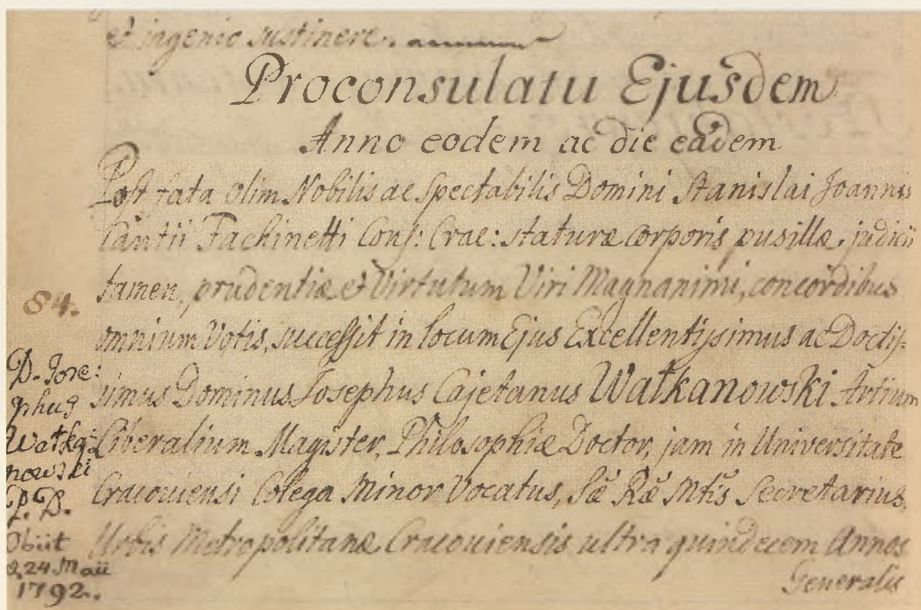 et ingenio sustinere.
Proconsulatu Ejusdem
Anno eodem ac die eadem
Post fata olim Nobilis ac Spectabilis Domini Stanislai Joannis
Cantii Fachinetti Cons: Crac: staturæ corporis pusillæ, judicii
tamen, prudentiæ et Virtutum Viri Magnanimi, concordibus
omnium Votis, successit in locum Ejus Excellentissimus ac Doctis-
simus Dominus Josephus Cajetanus Watkanowski Artium
Liberalium Magister, Philosophiæ Doctor, jam in Universitate
Cracoviensi Colega Minor Vocatus, Sæ Ræ Mtis Secretarius,
Urbis Metropolitanæ Cracoviensis ultra quindecem Annos
Generalis
84.
D. Jose:
phus
Watka-
nowski
P. D.
Obiit
d. 24 Maii
1792.